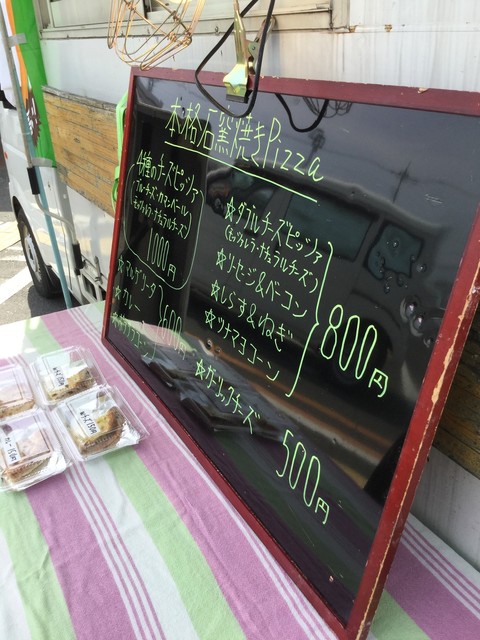 本格石窯焼きPizza
4種のチーズピッツァ
(ブルーチーズ・カマンベール
モッツァレラ・ナチュラルチーズ)
1000円
☆マルゲリータ
☆カレー
600円
☆ダブルチーズピッツァ
(モッツァレラ・ナチュラルチーズ)
☆ソーセージ&ベーコン
☆しらす&ねぎ
☆ツナマヨコーン
800円
☆ガーリックチーズ
500円